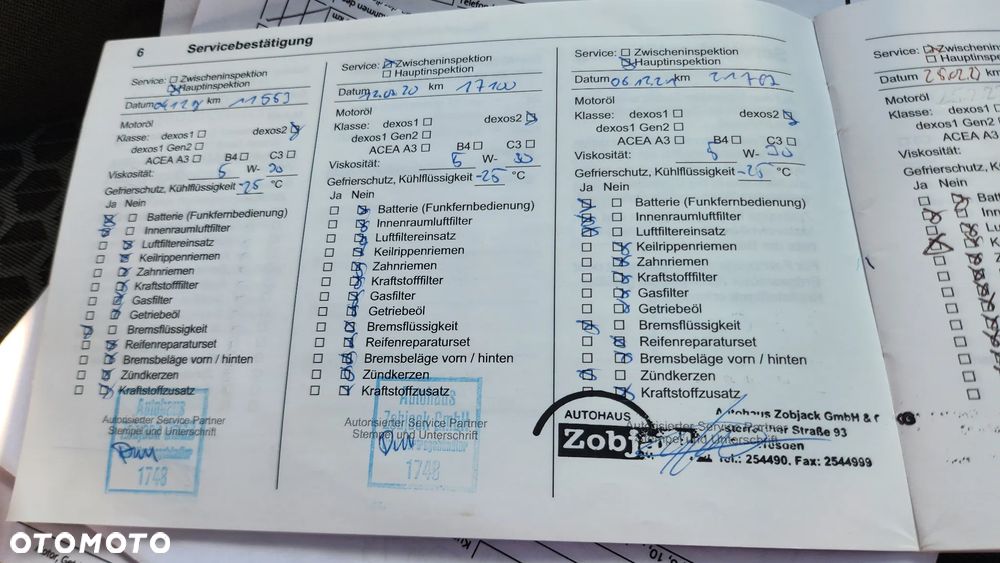 6 Servicebestätigung
Service: Zwischeninspektion
Hauptinspektion
Datum km 11553
Motoröl
Klasse: dexos1 dexos2
dexos1 Gen2
ACEA A3 B4 C3
Viskosität: 5 W- 30
Gefrierschutz, Kühlflüssigkeit -25 °C
Ja Nein
Batterie (Funkfernbedienung)
Innenraumluftfilter
Luftfiltereinsatz
Keilrippenriemen
Zahnriemen
Kraftstofffilter
Gasfilter
Getriebeöl
Bremsflüssigkeit
Reifenreparaturset
Bremsbeläge vorn / hinten
Zündkerzen
Kraftstoffzusatz
Autorisierter Service Partner
Stempel und Unterschrift
Autohaus
1748
Service: Zwischeninspektion
Hauptinspektion
Datum km 17100
Motoröl
Klasse: dexos1 dexos2
dexos1 Gen2
ACEA A3 B4 C3
Viskosität: 5 W- 30
Gefrierschutz, Kühlflüssigkeit -25 °C
Ja Nein
Batterie (Funkfernbedienung)
Innenraumluftfilter
Luftfiltereinsatz
Keilrippenriemen
Zahnriemen
Kraftstofffilter
Gasfilter
Getriebeöl
Bremsflüssigkeit
Reifenreparaturset
Bremsbeläge vorn / hinten
Zündkerzen
Kraftstoffzusatz
Autorisierter Service Partner
Stempel und Unterschrift
Autohaus
Zobjack GmbH
1748
Service: Zwischeninspektion
Hauptinspektion
Datum 06.12.21 km 21702
Motoröl
Klasse: dexos1 dexos2
dexos1 Gen2
ACEA A3 B4 C3
Viskosität: 5 W- 30
Gefrierschutz, Kühlflüssigkeit -25 °C
Ja Nein
Batterie (Funkfernbedienung)
Innenraumluftfilter
Luftfiltereinsatz
Keilrippenriemen
Zahnriemen
Kraftstofffilter
Gasfilter
Getriebeöl
Bremsflüssigkeit
Reifenreparaturset
Bremsbeläge vorn / hinten
Zündkerzen
Kraftstoffzusatz
Autorisierter Service Partner
Stempel und Unterschrift
AUTOHAUS
Zobj
Autohaus Zobjack GmbH &
Straße 93
Tel.: 254490, Fax: 2544999
Service: Zwischenin
Hauptinsp
Datum
Motoröl
Klasse: dexos1
dexos1 Gen2
ACEA A3
Viskosität:
Gefrierschutz, Kü
Ja Nein
OTOMOTO